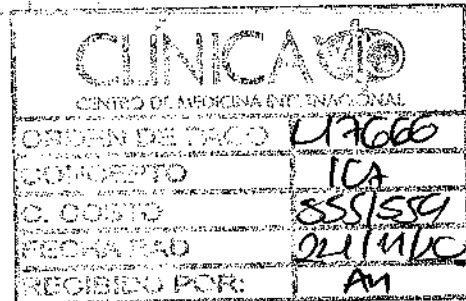 CLÍNICA
CENTRO DE MEDICINA INTERNACIONAL
ORDEN DE PAGO
CONCEPTO ICA
C. COSTO 555/559
FECHA RAD
RECIBIDO POR: AM